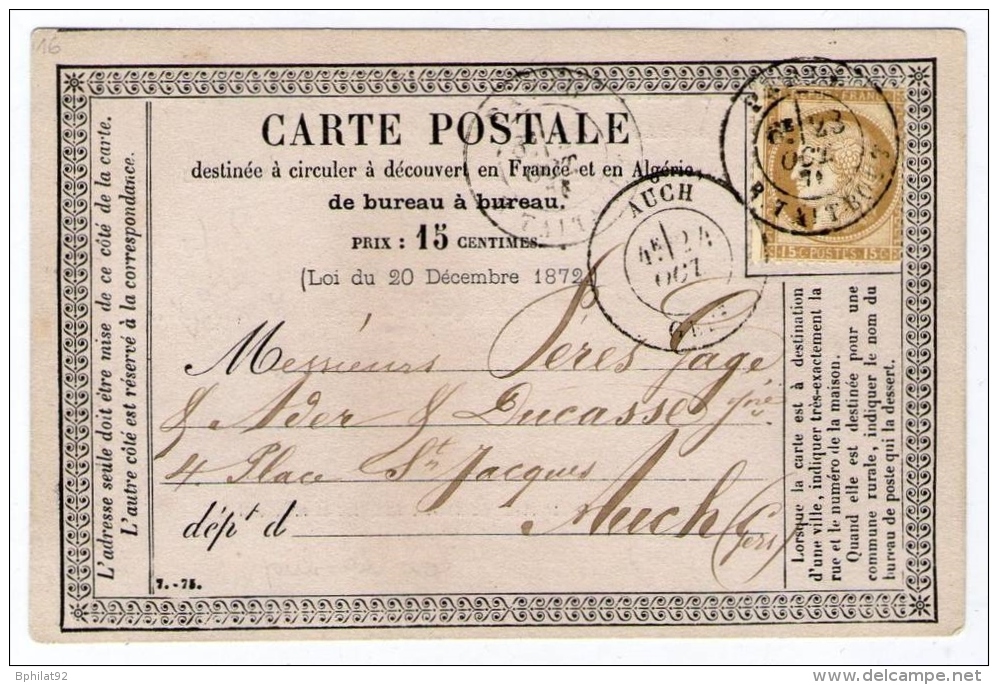 16
CARTE POSTALE
destinée à circuler à découvert en France et en Algérie,
de bureau à bureau.
PRIX : 15 CENTIMES.
(Loi du 20 Décembre 1872)
AUCH
4E 24
OCT
6E 23
OCT.
R. TAITBOUT
FRANC
15 C. POSTES 15 C.
Messieurs Pérès Gage
& Ader & Ducasse
4 Place St Jacques
dépt d Auch (Gers)
7.-75.
L'adresse seule doit être mise de ce côté de la carte.
L'autre côté est réservé à la correspondance.
Lorsque la carte est à destination
d'une ville, indiquer très-exactement la
rue et le numéro de la maison.
Quand elle est destinée pour une
commune rurale, indiquer le nom du
bureau de poste qui la dessert.
Bphilat92
delcampe.net